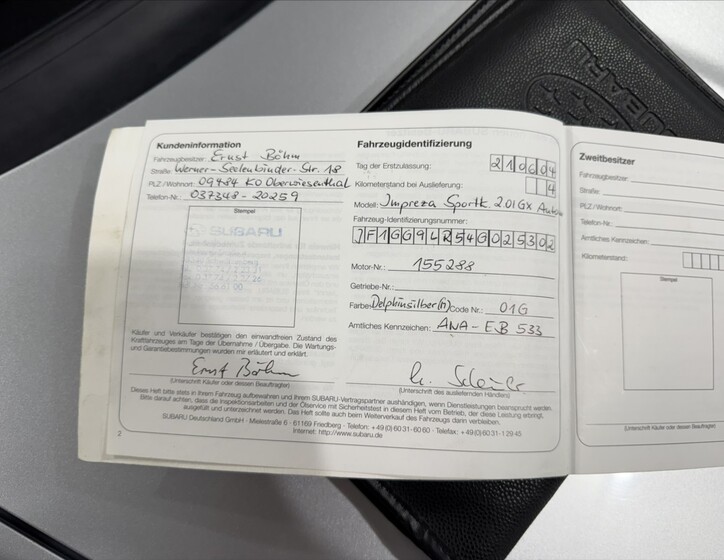 SUBARU
Kundeninformation
Fahrzeugbesitzer: Ernst Böhm
Straße: Werner-Seelenbinder-Str. 18
PLZ / Wohnort: 09484 KO Oberwiesenthal
Telefon-Nr.: 037348-20259
Stempel
SUBARU
Käufer und Verkäufer bestätigen den einwandfreien Zustand des
Kraftfahrzeuges am Tage der Übernahme / Übergabe. Die Wartungs-
und Garantiebestimmungen wurden mir erläutert und erklärt.
Ernst Böhm
(Unterschrift Käufer oder dessen Beauftragter)
Fahrzeugidentifizierung
Tag der Erstzulassung: 210604
Kilometerstand bei Auslieferung: 4
Modell: Impreza Sportk 2.0l GX Autom
Fahrzeug-Identifizierungsnummer:
JF1GG9LR54G025302
Motor-Nr.: 155288
Getriebe-Nr.:
Farbe: Delphinsilber(m) Code Nr.: 01G
Amtliches Kennzeichen: ANA-EB 533
(Unterschrift des ausliefernden Händlers)
Dieses Heft bitte stets in Ihrem Fahrzeug aufbewahren und Ihrem SUBARU-Vertragspartner aushändigen, wenn Dienstleistungen beansprucht werden.
Bitte darauf achten, dass die Inspektionsarbeiten und der Ölservice mit Sicherheitstest in diesem Heft vom Betrieb, der diese Leistung erbringt,
ausgefüllt und unterzeichnet werden. Das Heft sollte auch beim Weiterverkauf des Fahrzeugs darin verbleiben.
SUBARU Deutschland GmbH · Mielestraße 6 · 61169 Friedberg · Telefon: +49 (0) 60 31- 60 60 · Telefax: +49 (0) 60 31-1 29 45
Internet: http://www.subaru.de
2
Zweitbesitzer
Fahrzeugbesitzer:
Straße:
PLZ/Wohnort:
Telefon-Nr.:
Amtliches Kennzeichen:
Kilometerstand:
Stempel
(Unterschrift Käufer oder dessen Beauftragter)